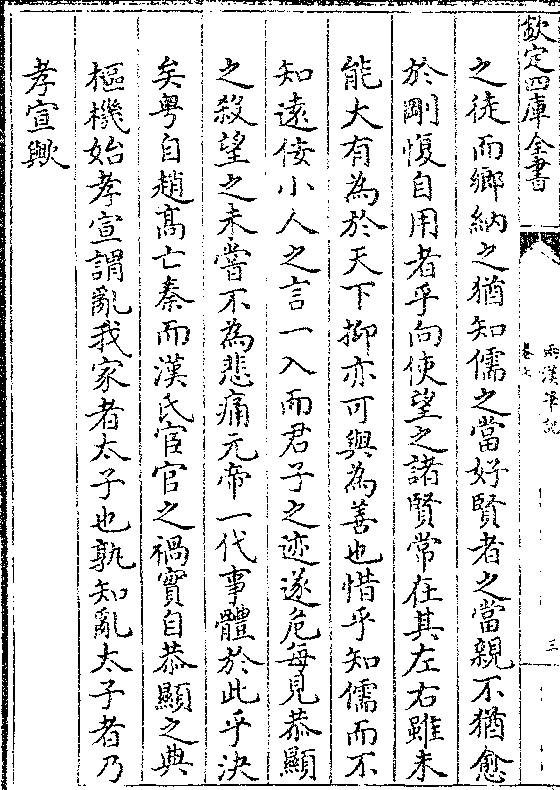 欽定四庫全書
兩漢筆記
三
之徒而鄉納之猶知儒之當好賢者之當親不猶愈
於剛愎自用者乎向使望之諸賢常在其左右雖未
能大有為於天下抑亦可與為善也惜乎知儒而不
知遠佞小人之言一入而君子之迹遂危每見恭顯
之殺望之未嘗不為悲痛元帝一代事體於此乎決
矣粤自趙髙亡秦而漢氏宦官之禍實自恭顯之典
樞機始孝宣謂亂我家者太子也孰知亂太子者乃
孝宣歟